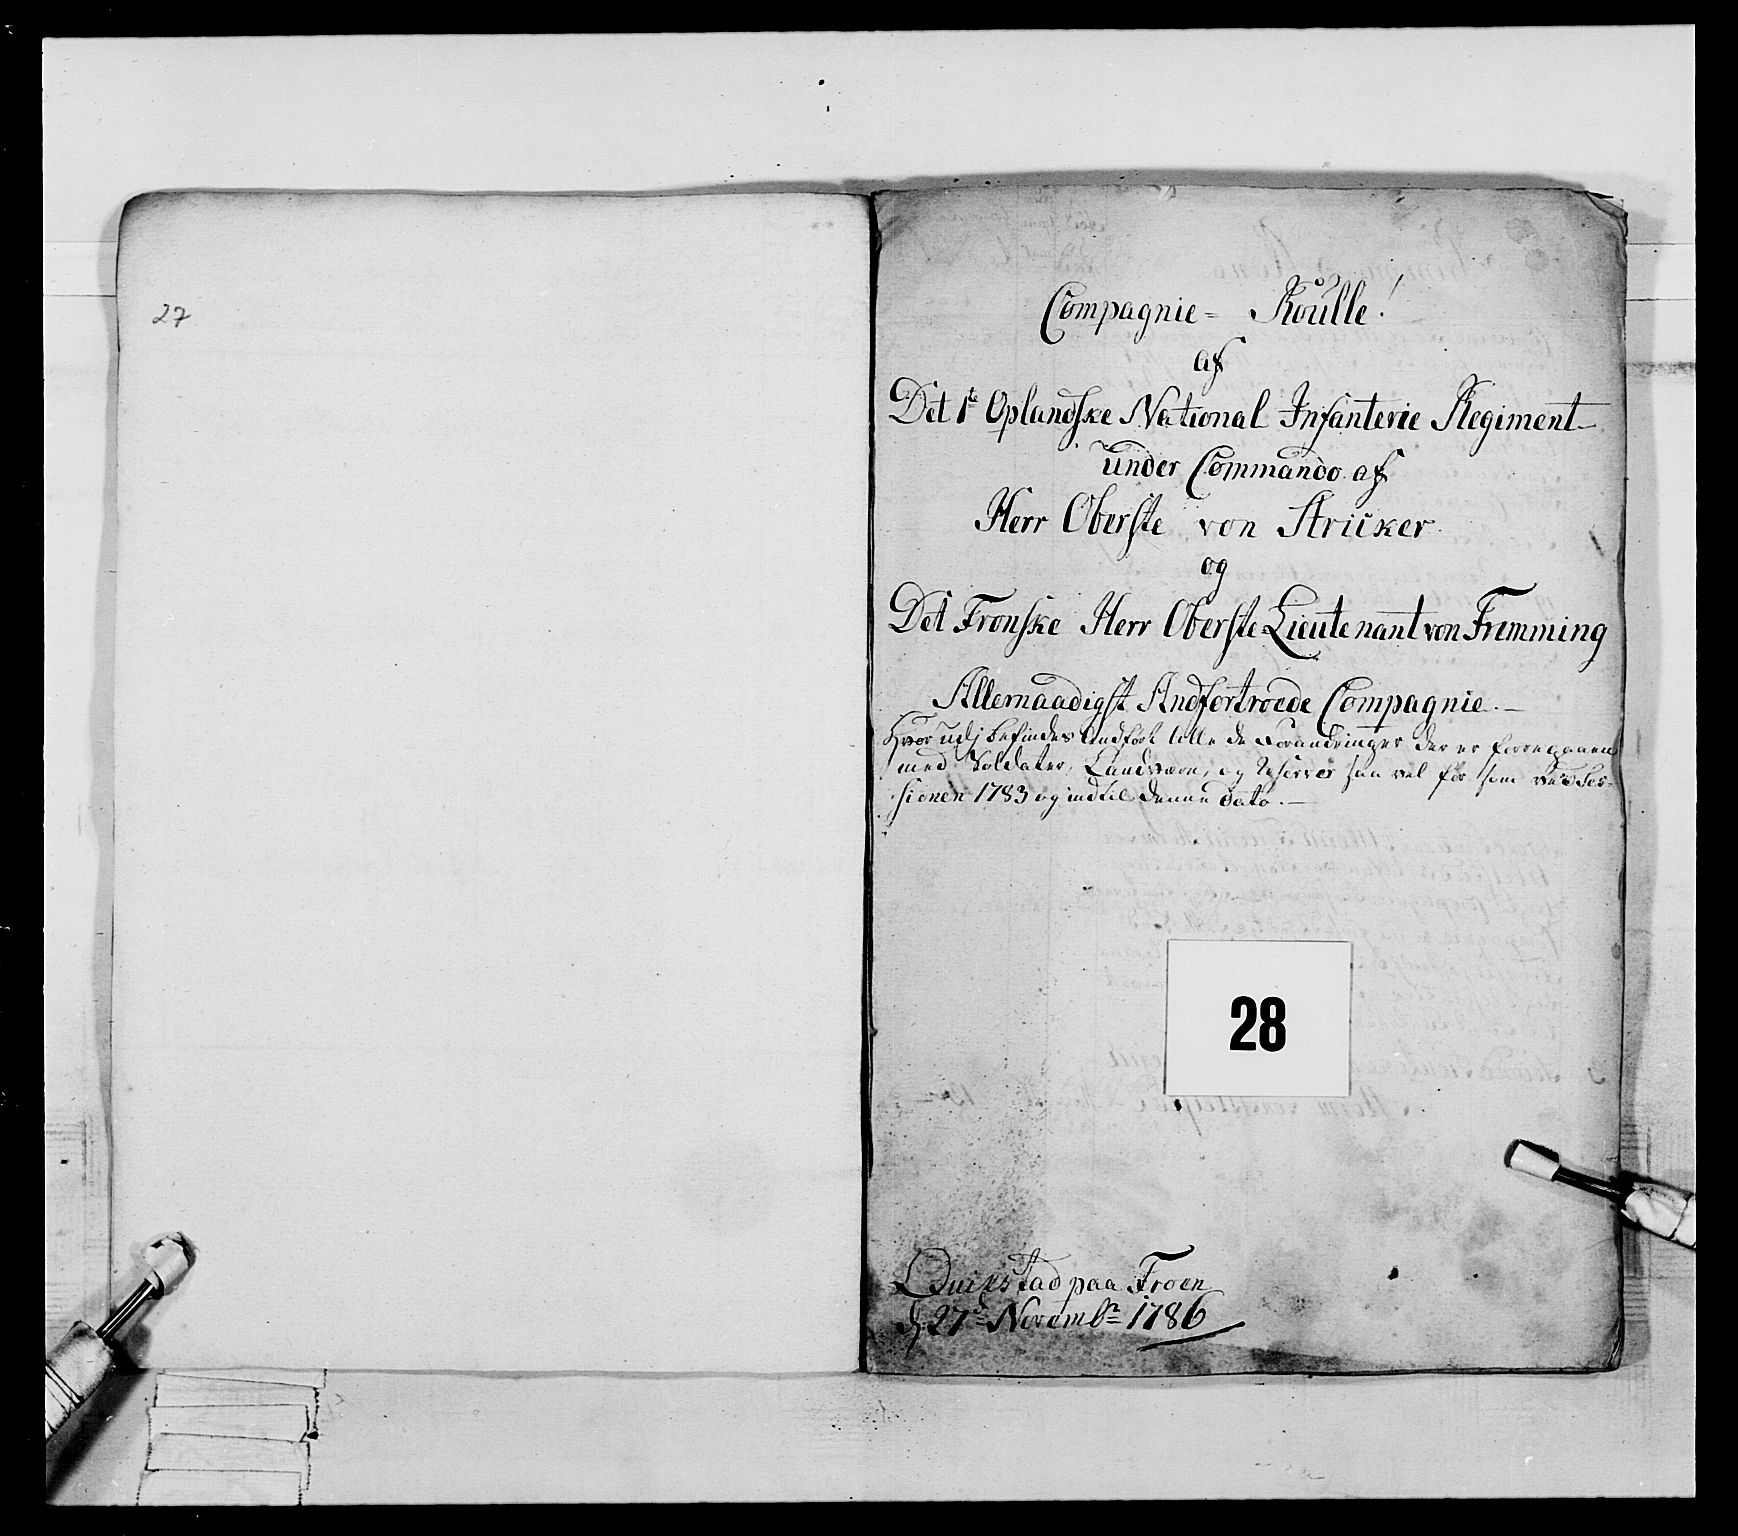 27
Compagnie= Roulle!
af
Det 1te Oplandske National Infanterie Regiment
under Commando af
Herr Oberste von Stricker
og
Det Fronske Herr Oberste Lieutenant von Fremming
Allernaadigst Andfortroede Compagnie.
Hvor udj befindes andført alle de Forandringer der er forregaaen
med Soldater, Landværn, og Reserver saa vel før som ved Ses-
sionen 1783 og indtil denne dato.
28
Quikstad paa Froen
d: 27de Novembr 1786